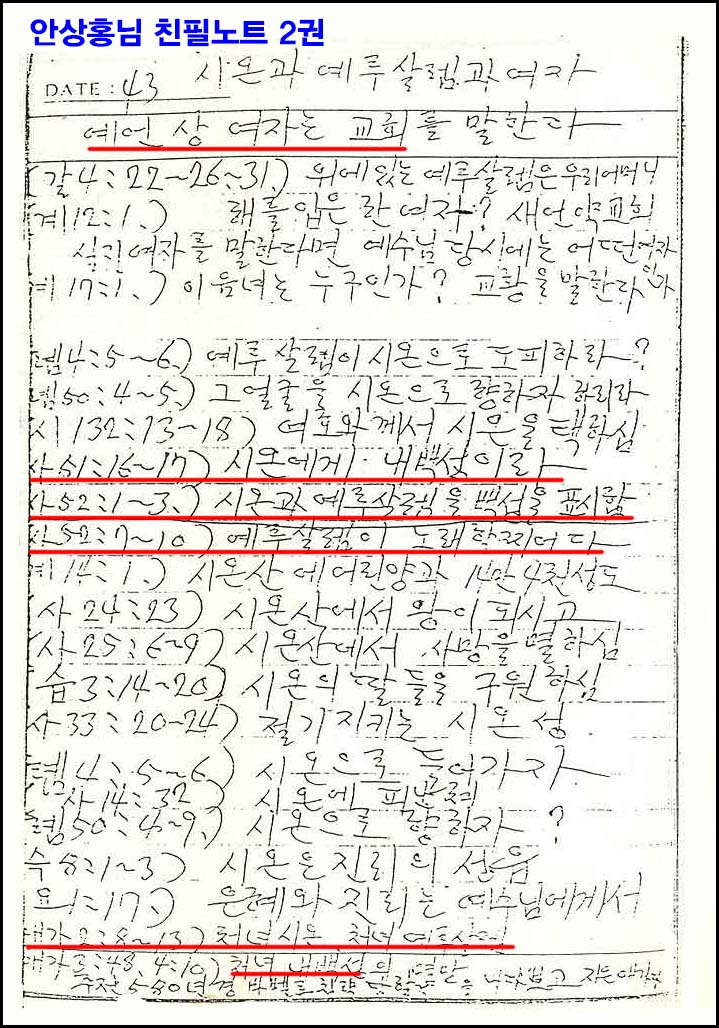 안상홍님 친필노트 2권
DATE : 43 시온과 예루살렘과 여자
예언상 여자는 교회를 말한다
(갈4:22~26~31.) 위에있는 예루살렘은 우리어머니
(계12:1.) 해를입은 한 여자? 새언약교회
실지여자를 말한다면 예수님 당시에는 어떤여자인가
계17:1.) 이 음녀는 누구인가? 교황을 말한다
렘4:5~6.) 예루살렘이 시온으로 도피하라?
렘50:4~5.) 그얼굴을 시온으로 향하자 하리라
시132:13~18) 여호와께서 시온을 택하심
사51:16~17) 시온에게 내백성이라
사52:1~3.) 시온과 예루살렘을 백성을 표시함
사52:7~10) 예루살렘이 노래할지어다
계14:1.) 시온산에 어린양과 14만4천성도
(사24:23) 시온산에서 왕이 되시고
(사25:6~9) 시온산에서 사망을 멸하심
(습3:14~20) 시온의 딸들을 구원하심
사33:20~24) 절기지키는 시온성
렘4:5~6) 시온으로 들어가자
(사14:32) 시온에 피난
렘50:4~9.) 시온으로 향하자?
수8:1~3) 시온은 진리의
요1:17.) 은혜와 진리는 예수님에게서
애가2:8~13) 처녀시온 처녀 예루살렘
애가3:48, 4:10) 처녀 내백성의
주전580년경 바벨론 침략 보고 지은 애가